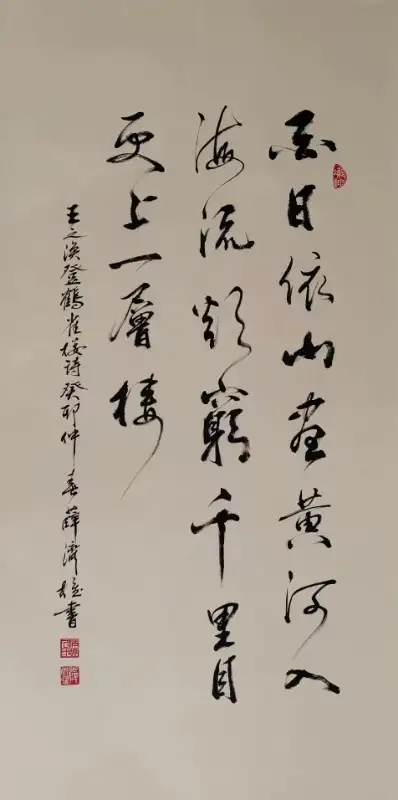 白日依山盡黄河入
海流欲窮千里目
更上一層樓
王之渙登鶴雀樓詩癸卯仲春薛濟書